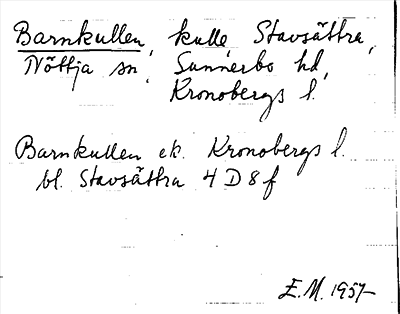 Barnkullen, kulle, Stavsättra,
Nöttja sn, Sunnerbo hd,
Kronobergs l.
Barnkullen ek. Kronobergs l.
bl. Stavsättra 4 D 8 f
E.M. 1957